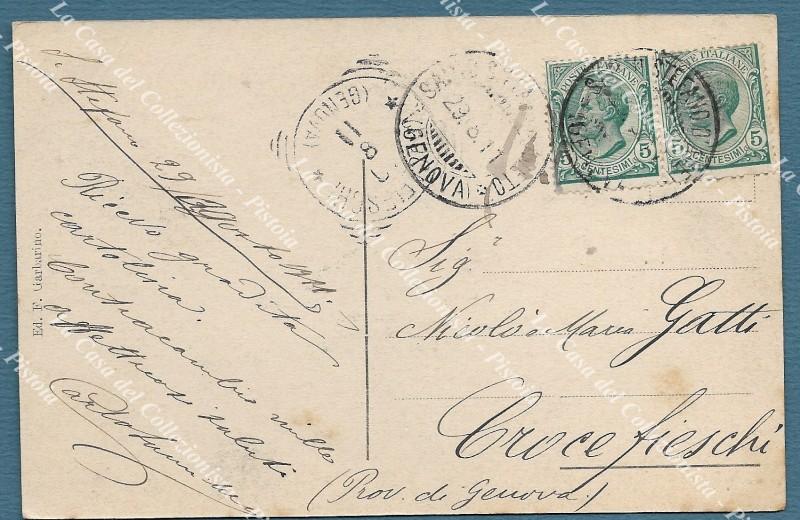 S. Stefano 29/Agosto 1911
Ricevo gradita
cartolina.
Contraccambio mille
affettuosi saluti
Ed. F. Garbarino.
(GENOVA)
29.8.11
(GENOVA)
POSTE ITALIANE
5 CENTESIMI 5
POSTE ITALIANE
5 CENTESIMI 5
Sig.r
Nicolò e Maria Gatti
Croce fieschi
(Prov. di Genova)
La Casa del Collezionista - Pistoia